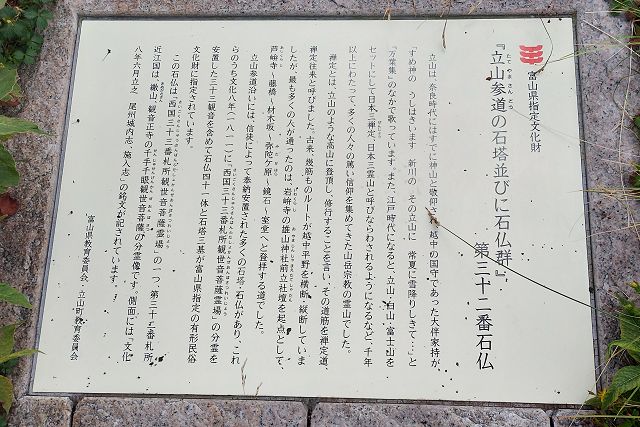 富山県指定文化財
『立山参道の石塔並びに石仏群』
たて やま さん どう
第三十二番石仏
立山は、奈良時代にはすでに神山と敬仰され、越中の国守であった大伴家持が、
「すめ神の うしはきいます 新川の その立山に 常夏に雪降りしきて…」と
『万葉集』のなかで歌っています。また、江戸時代になると、立山・白山・富士山を
セットにして日本三禅定、日本三霊山と呼びならわされるようになるなど、千年
以上にわたって、多くの人々の篤い信仰を集めてきた山岳宗教の霊山でした。
禅定とは、立山のような高山に登頂し、修行することを言い、その道筋を禅定道、
禅定往来と呼びました。古来、幾筋ものルートが越中平野を横断・縦断していま
したが、最も多くの人が通ったのは、岩峅寺の雄山神社前立社壇を起点として、
芦峅寺~藤橋~材木坂~弥陀ヶ原~鏡石~室堂へと登拝する道でした。
立山参道沿いには、信徒によって奉納安置された多くの石塔・石仏があり、これ
らのうち文化八年(一八一一)に、「西国三十三番札所観世音菩薩霊場」の分霊を
安置した三十三観音を含めて石仏四十一体と石塔三基が富山県指定の有形民俗
文化財に指定されています。
この石仏は「西国三十三番札所観世音菩薩霊場」の一つ、第三十二番札所
近江国は、繖山、観音正寺の千手千眼観世音菩薩の分霊像です。側面には「文化
八年六月立之 尾州城内志、施入志」の銘文が記されています。
富山県教育委員会・立山町教育委員会